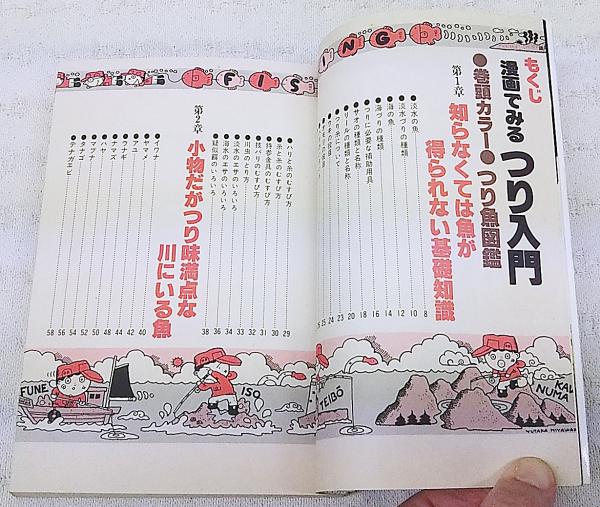 もくじ
漫画でみる
つり入門
●巻頭カラー●つり魚図鑑
第1章
知らなくては魚が
得られない基礎知識
●淡水の魚 8
●淡水づりの種類 10
●海の魚 12
●海づりの種類 14
●つりに必要な補助用具 16
●サオの種類と名称 18
●リールの種類と名称 20
●つり糸について 23
●ハリと糸のむすび方 29
●糸と糸のむすび方 30
●持参金具のむすび方 31
●技バリのむすび方 32
●川虫のとり方 33
●淡水のエサのいろいろ 34
●海水のエサのいろいろ 36
●疑似餌のいろいろ 38
第2章
小物だがつり味満点な
川にいる魚
●イワナ 40
●ヤマメ 42
●アユ 44
●ウナギ 46
●ナマズ 48
●ハヤ 50
●マブナ 52
●タナゴ 54
●テナガエビ 56
58
OFIS
ING
FUNE
ISO
TEIBŌ
KAWA
NUMA